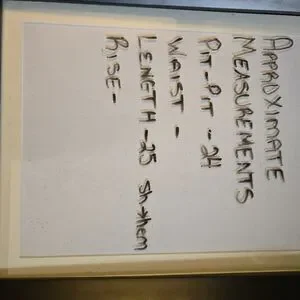 APPROXIMATE
MEASUREMENTS
PIT-PIT - 24
WAIST -
LENGTH - 25 Sh→hem
RISE -